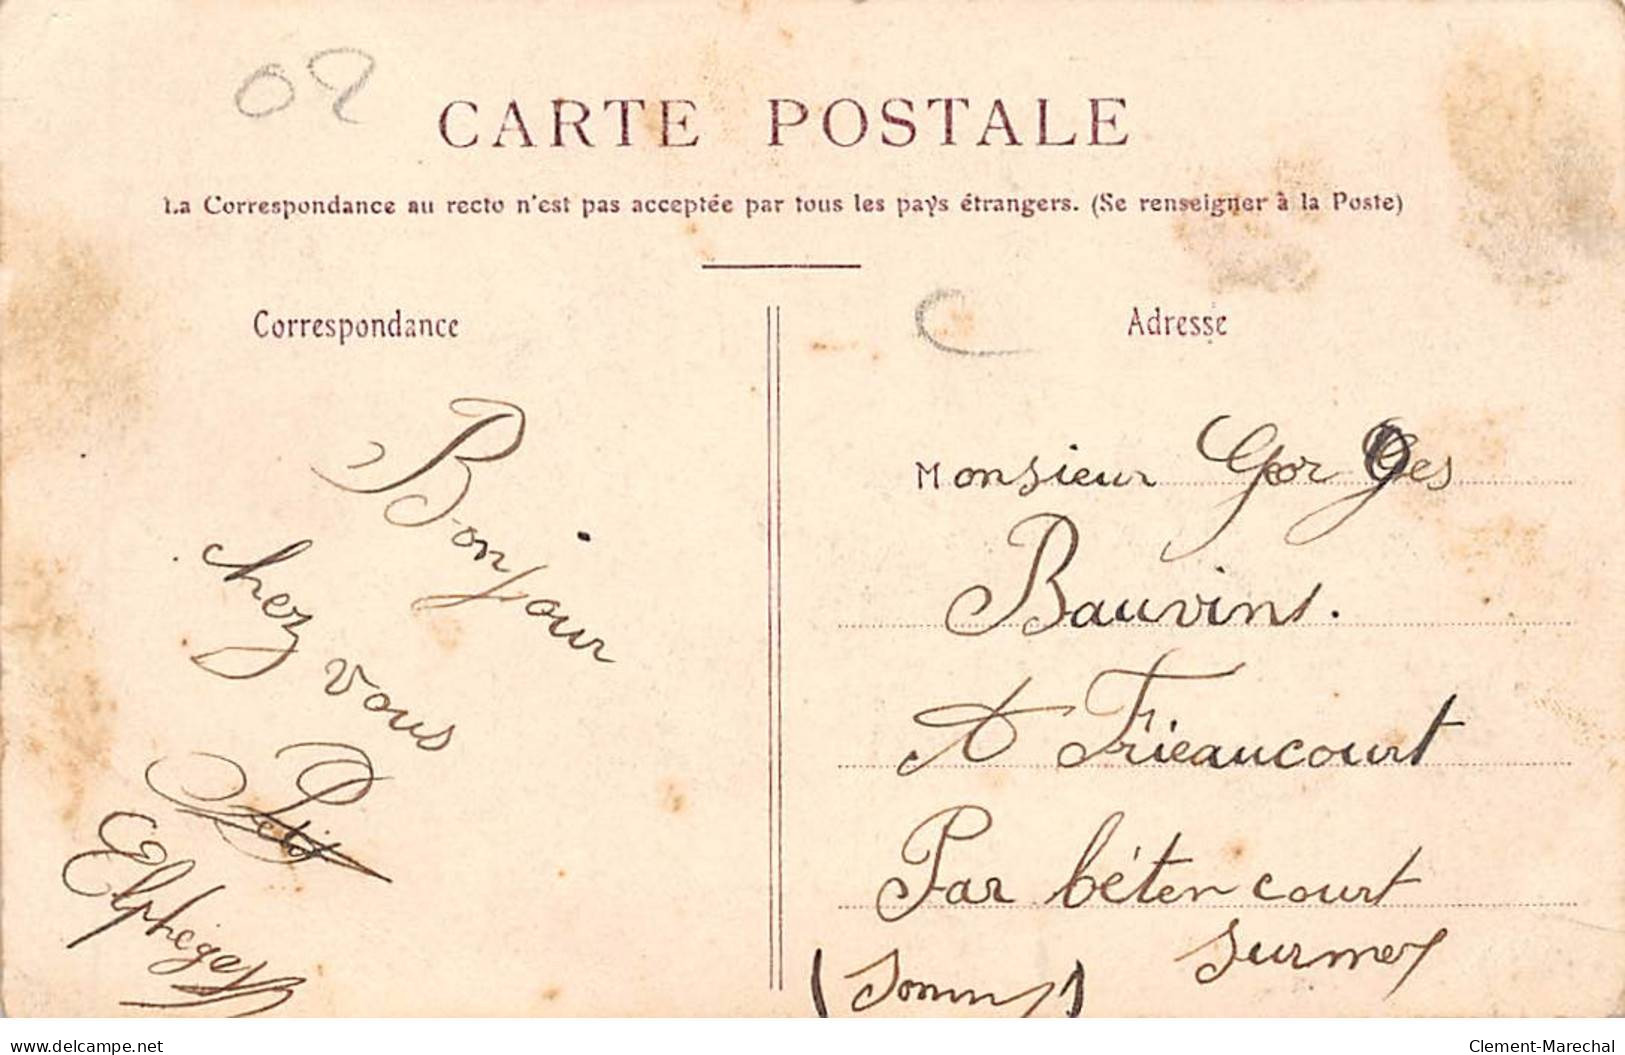 02
CARTE POSTALE
La Correspondance au recto n'est pas acceptée par tous les pays étrangers. (Se renseigner à la Poste)
Correspondance
Bonjour
chez vous
Petit
Elphège
Adresse
Monsieur Georges
Bauvins.
A Frieaucourt
Par béten court
surmer
(Somme)
www.delcampe.net
Clement-Marechal